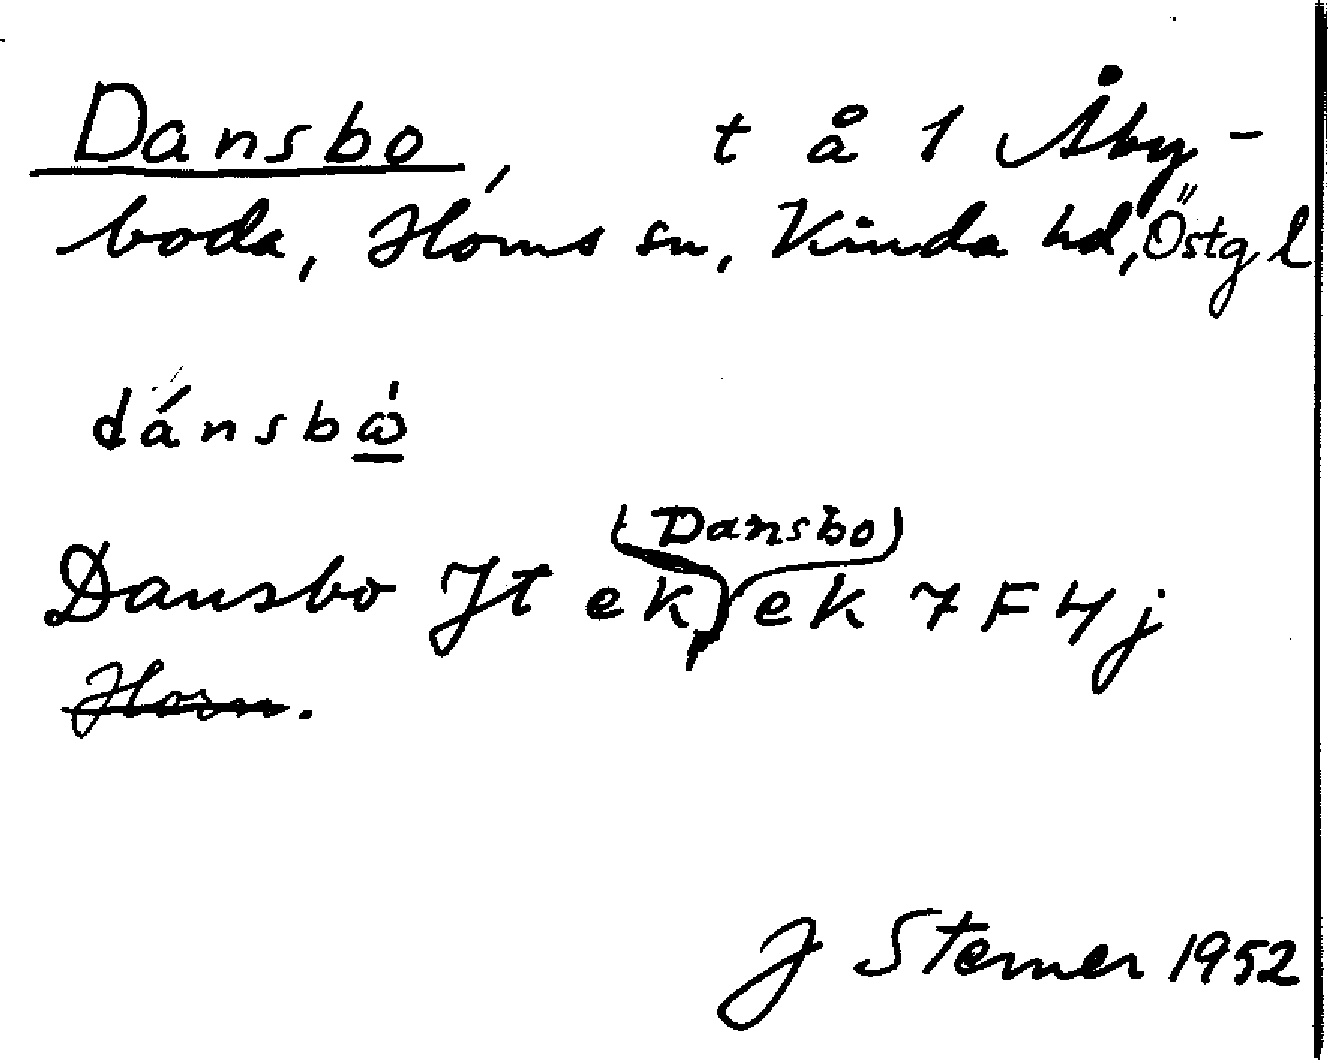 Dansbo, t å 1 Åby-
boda, Horns sn, Kinda hd, Östg l
dánsbὼ
(Dansbo)
Dansbo Jt ek, ek 7 F 4 j
Horn.
J Sterner 1952